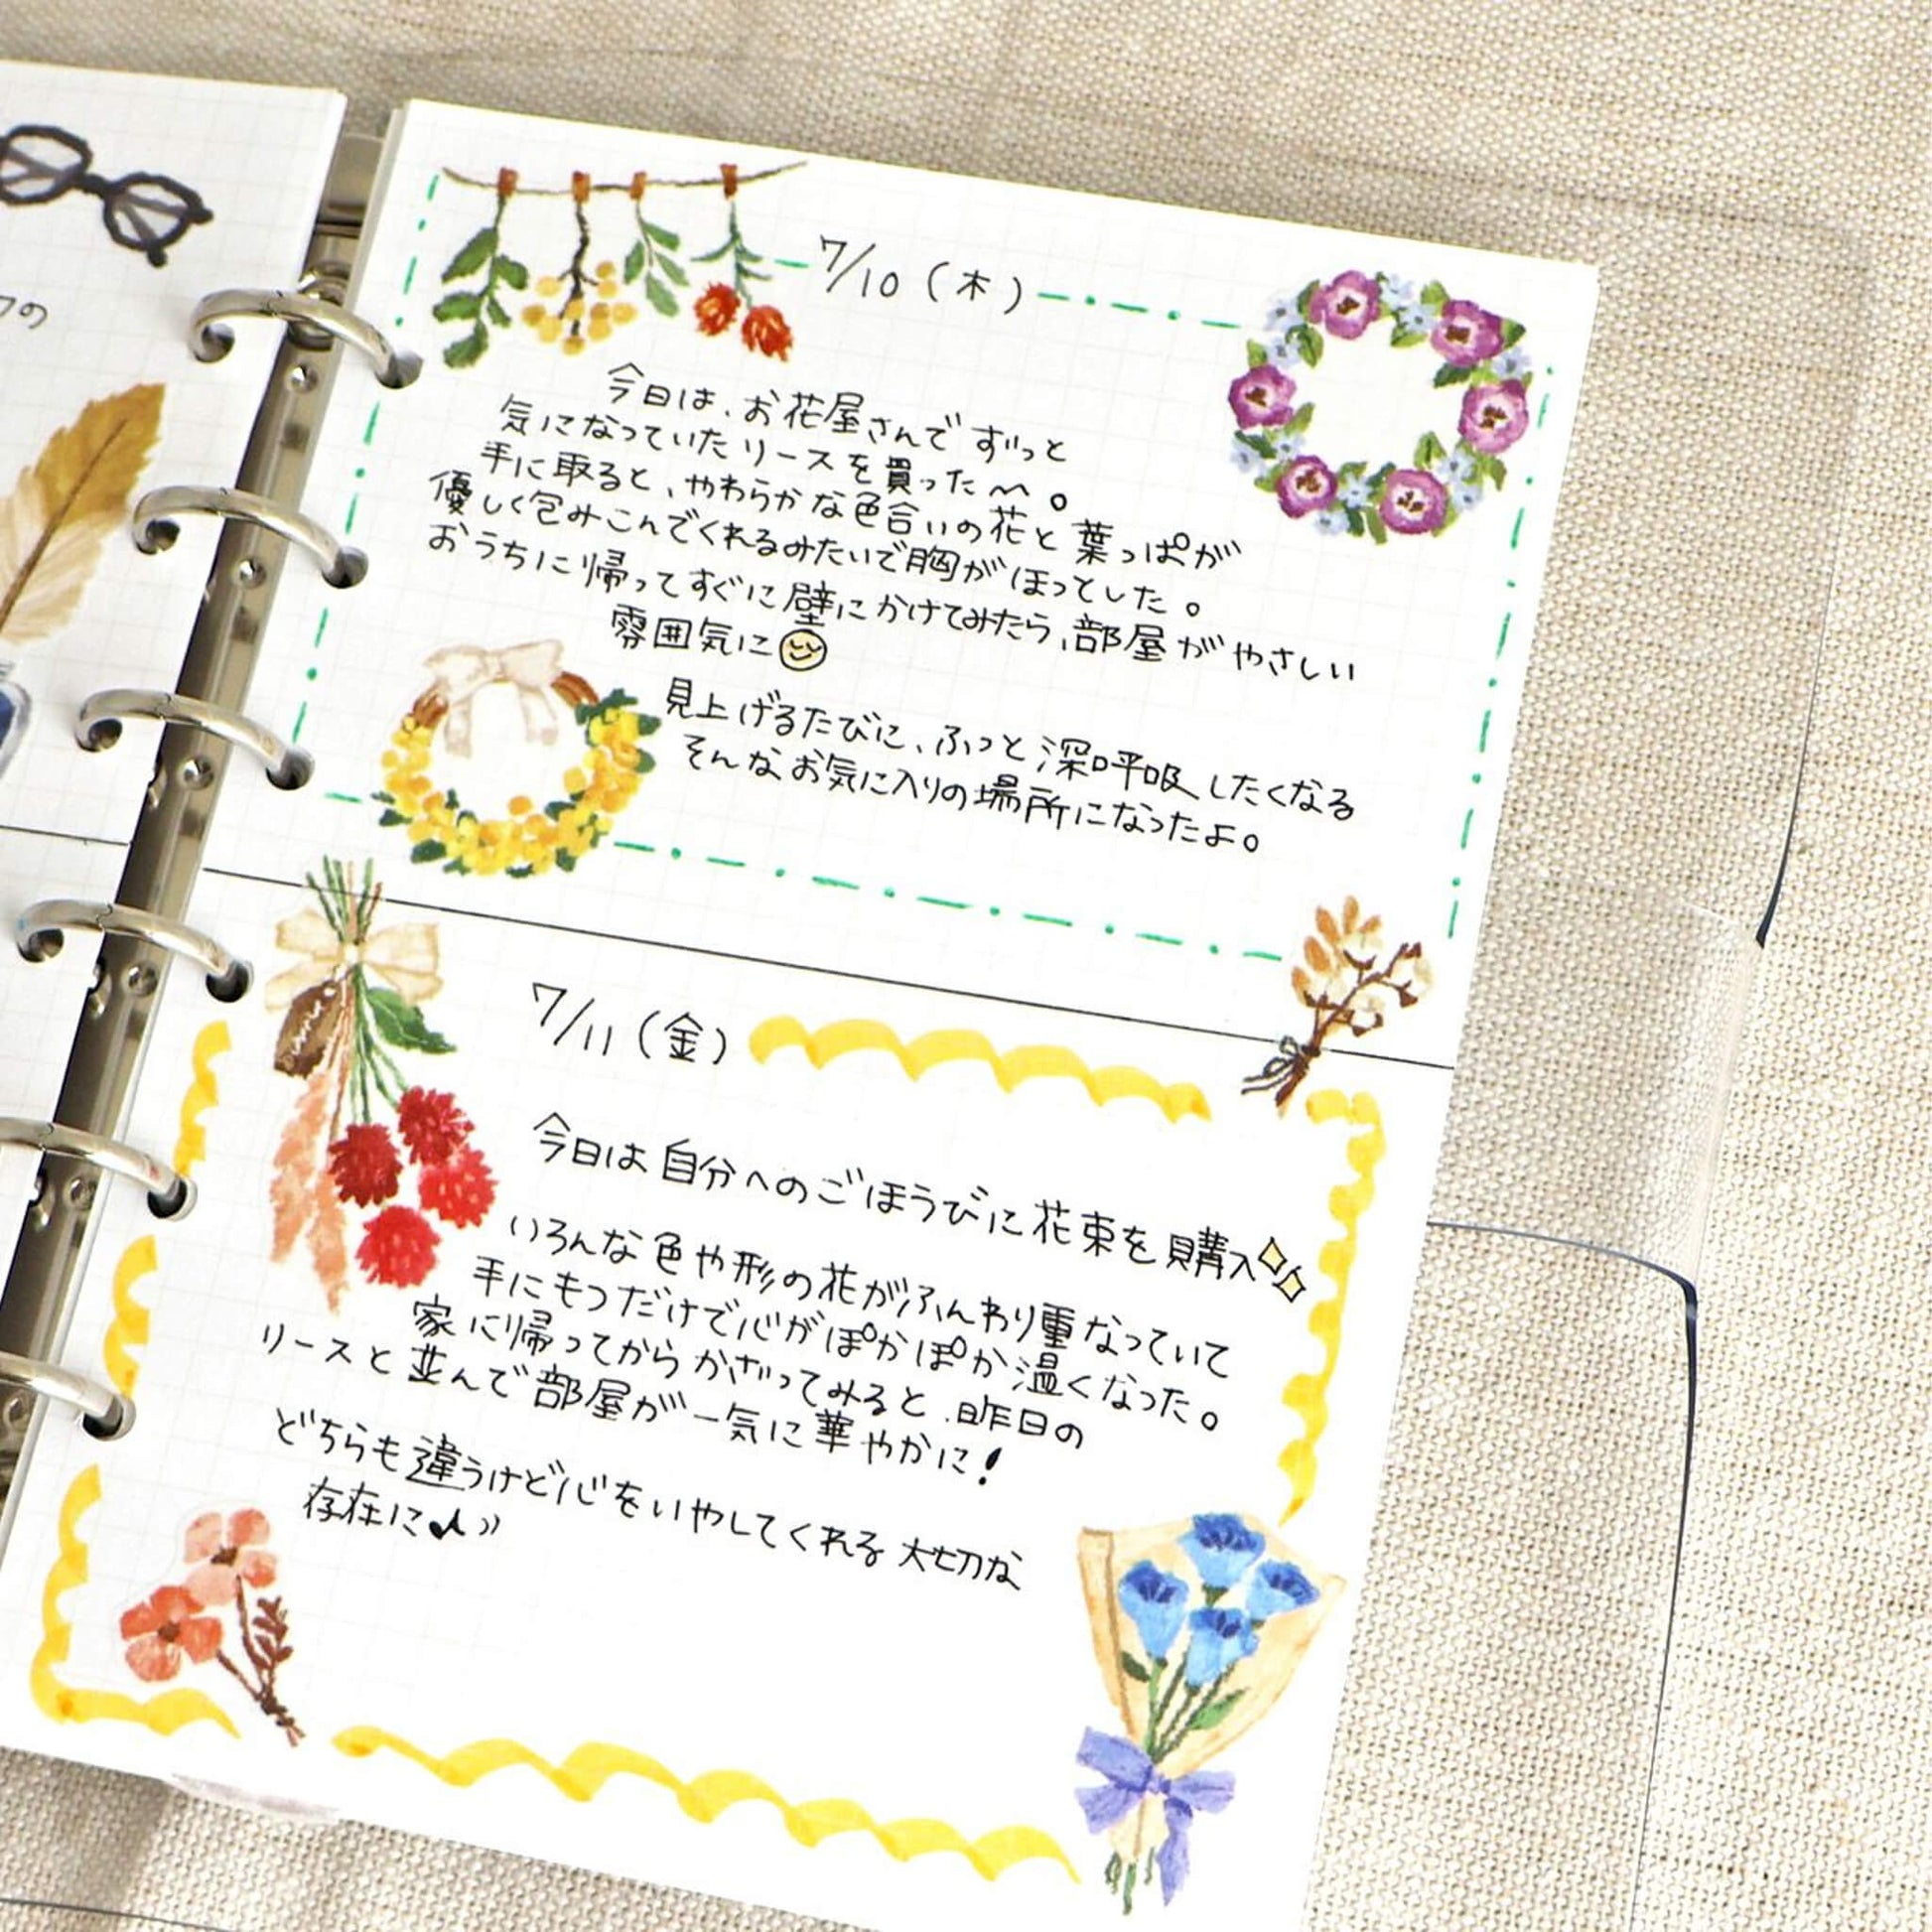 クの
7/10（木）
今日は、お花屋さんでずっと
気になっていたリースを買った〜。
手に取ると、やわらかな色合いの花と葉っぱが
優しく包みこんでくれるみたいで胸がほっとした。
おうちに帰ってすぐに壁にかけてみたら、部屋がやさしい
雰囲気に
見上げるたびに、ふっと深呼吸したくなる
そんなお気に入りの場所になったよ。
7/11（金）
今日は自分へのごほうびに花束を購入
いろんな色や形の花がふんわり重なっていて
手にもつだけで心がぽかぽか温くなった。
家に帰ってからかざってみると、昨日の
リースと並んで部屋が一気に華やかに！
どちらも違うけど心をいやしてくれる大切な
存在に♪